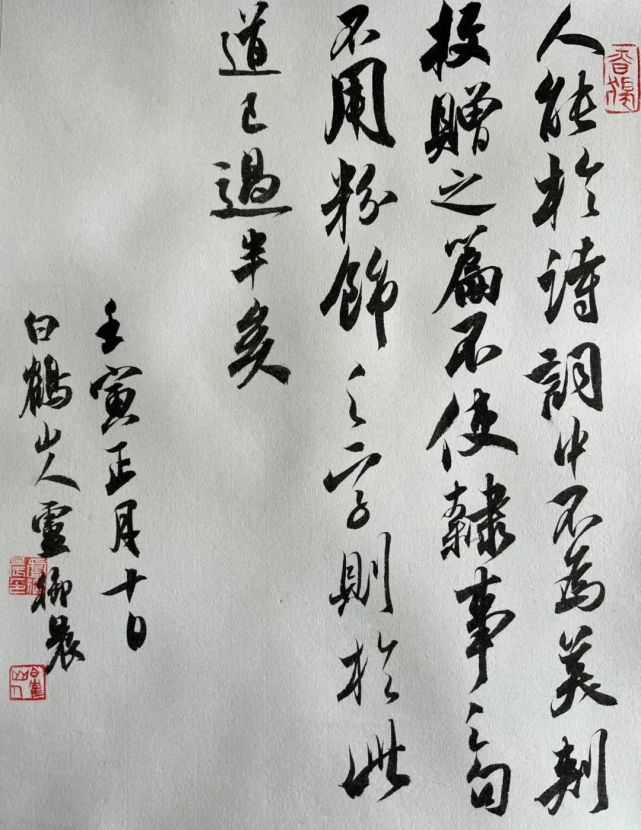 人能於詩詞中不為美刺
投贈之篇不使隸事之句
不用粉飾之字則於此
道已過半矣
壬寅正月十日
白鶴山人靈柳晨